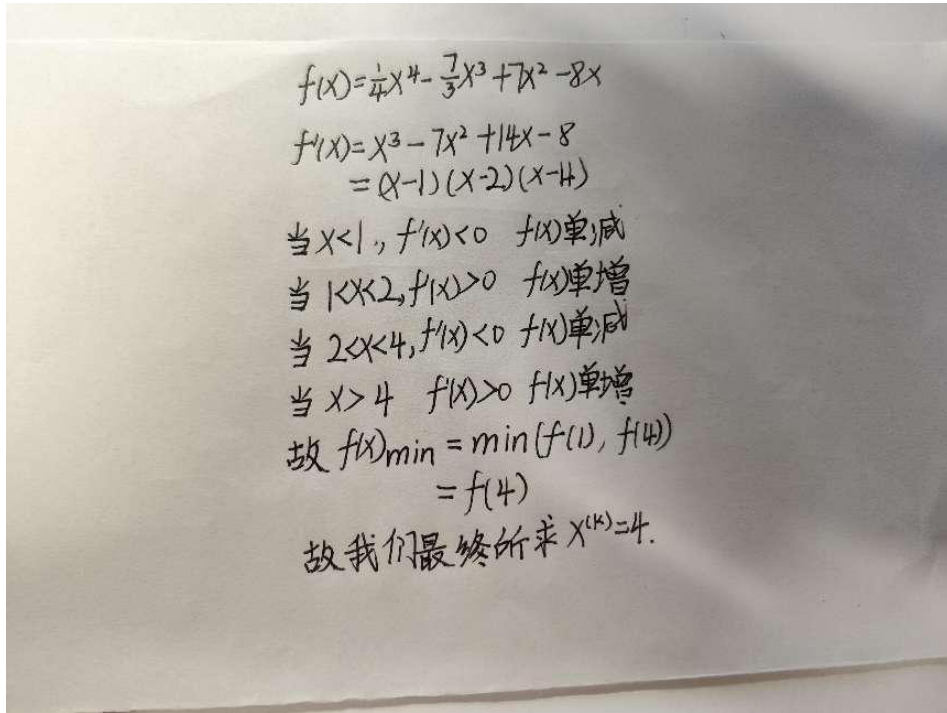 f(x)=¼x⁴-7/3x³+7x²-8x
f'(x)=x³-7x²+14x-8
=(x-1)(x-2)(x-4)
当x<1, f'(x)<0 f(x)单减
当1<x<2, f'(x)>0 f(x)单增
当2<x<4, f'(x)<0 f(x)单减
当x>4 f'(x)>0 f(x)单增
故f(x)min=min(f(1), f(4))
=f(4)
故我们最终所求x⁽ᵏ⁾=4.